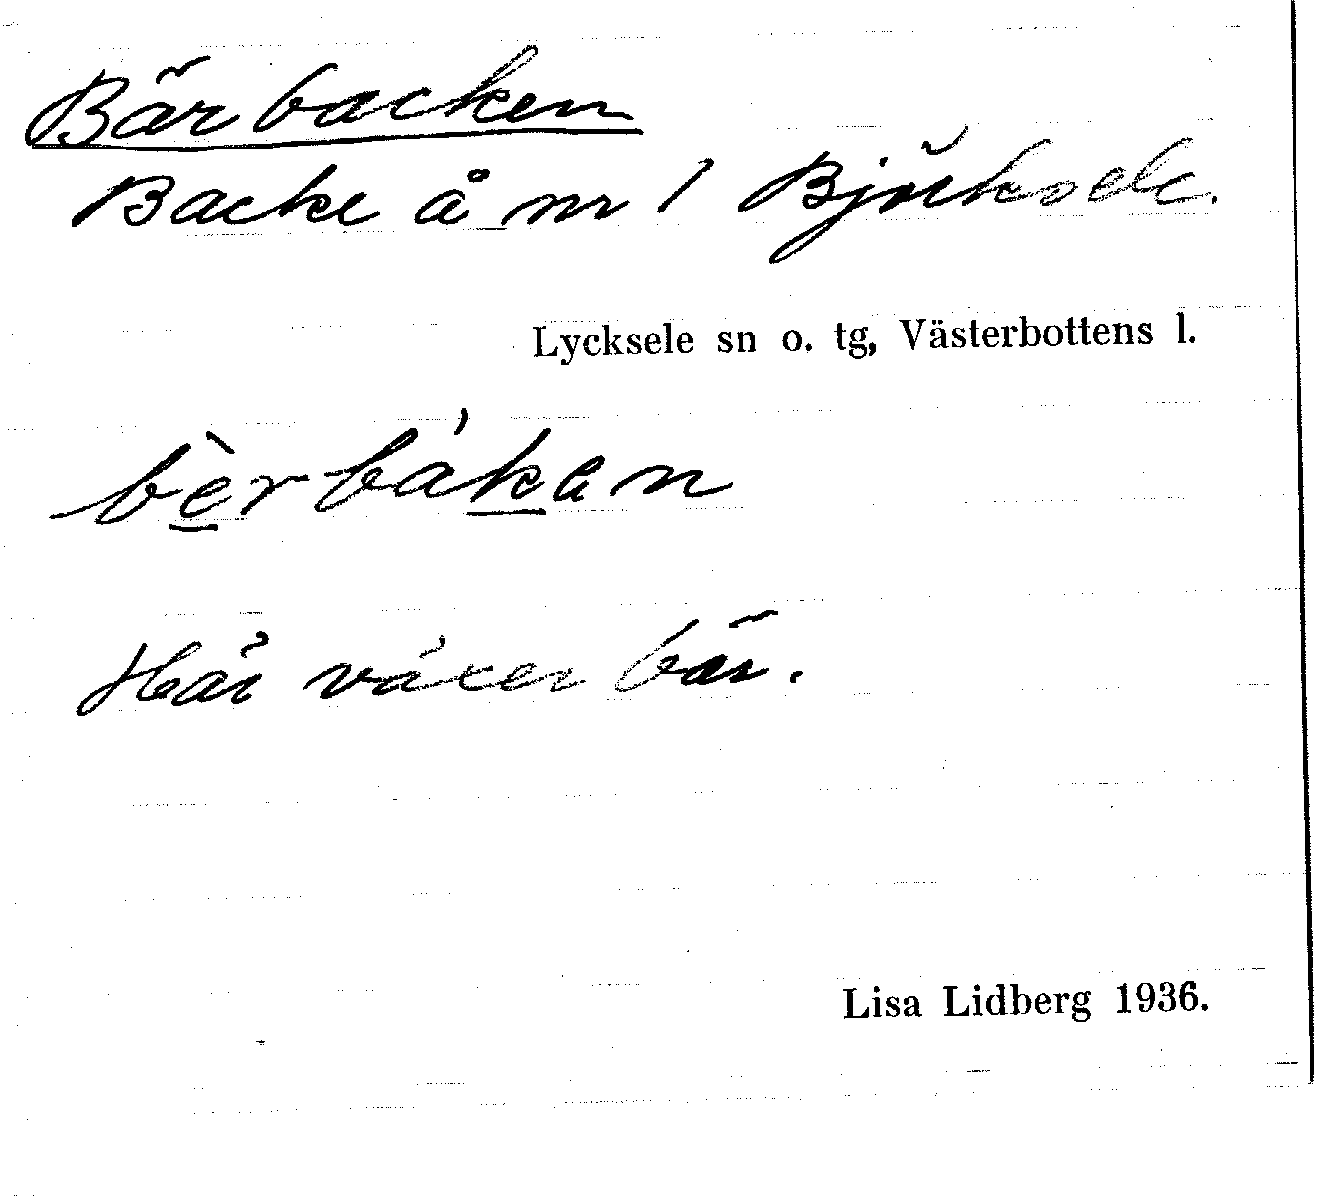 Bärbacken
Backe å nr 1 Björksele.
Lycksele sn o. tg, Västerbottens l.
bèrbákan
Här växer bär.
Lisa Lidberg 1936.